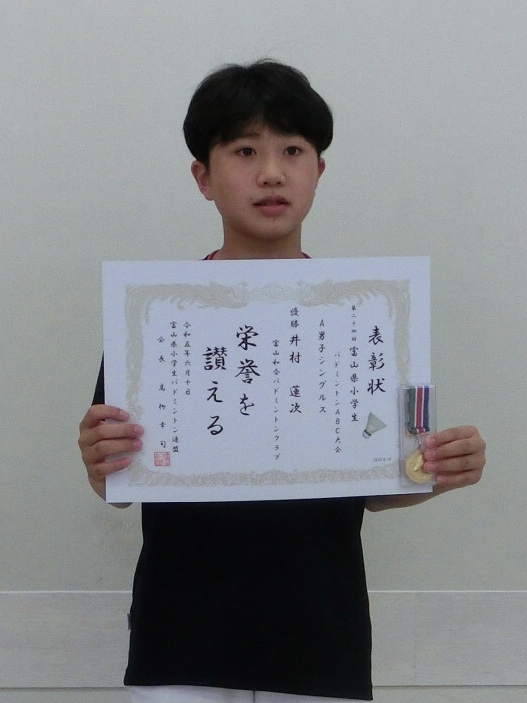 表彰状
第二十四回 富山県小学生
バドミントンABC大会
A男子シングルス
優勝 井村 蓮次
富山和合バドミントンクラブ
栄誉を
讃える
令和五年六月十日
富山県小学生バドミントン連盟
会長 高柳幸司